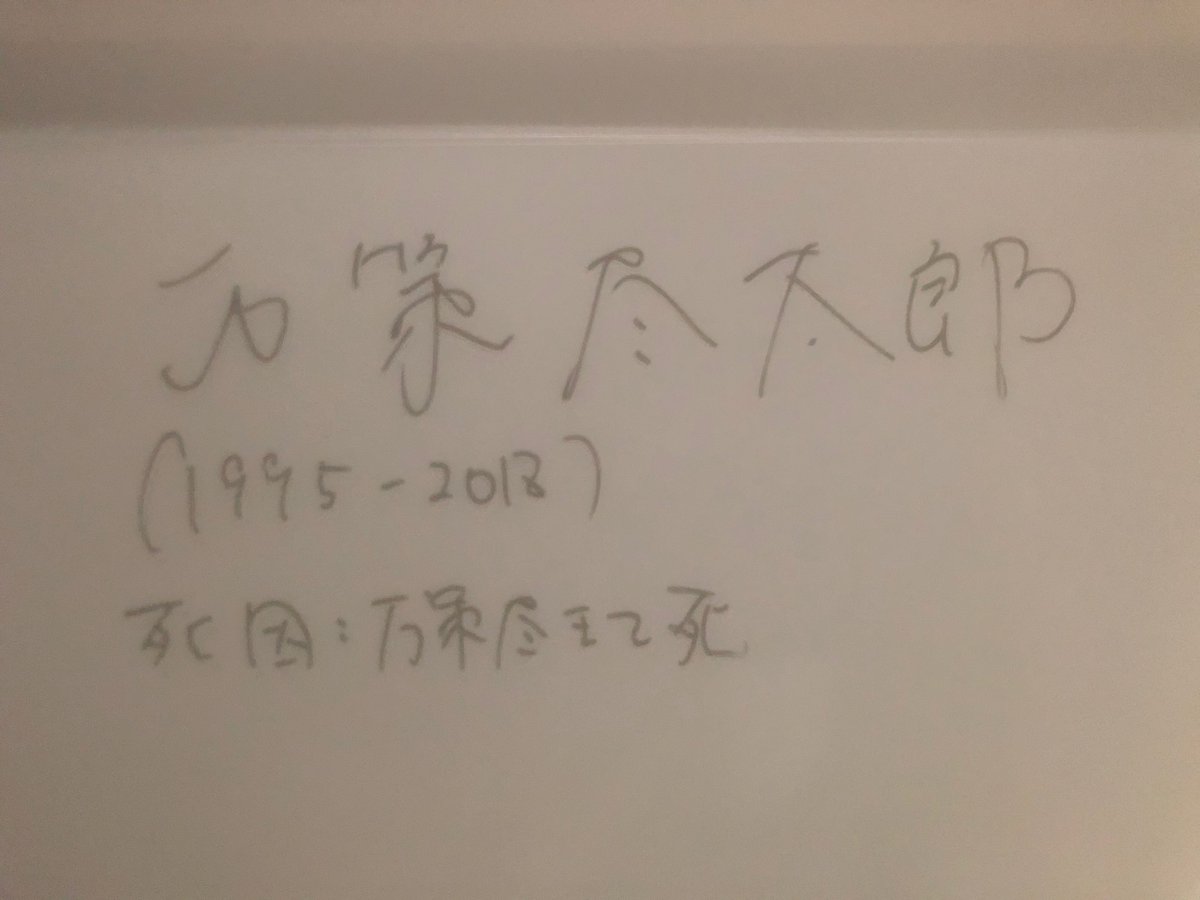 万策尽太郎
(1995-2018)
死因:万策尽きて死